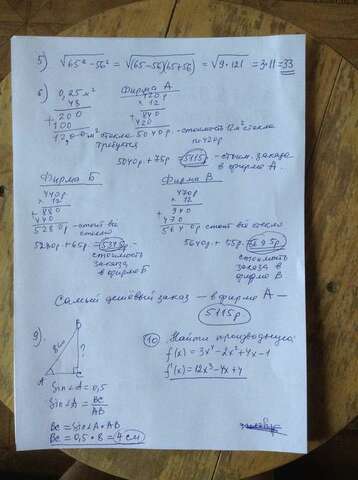 5) √65² - 56² = √(65-56)(65+56) = √9·121 = 3·11 = 33
6) 0,25 м²
48
+ 200
100
12,00 м² стекла требуется
Фирма А
420р
× 12
+ 840
420
5040р - стоимость 12 м² стекла по 420р
5040р + 75р = 5115р - стоим. заказа в фирме А.
Фирма Б
440р
× 12
+ 880
440
5280р - стоит всё стекло
5280р + 65р = 5345р - стоимость заказа в фирме Б
Фирма В
470р
× 12
+ 940
470
5640р стоит всё стекло
5640р + 55р = 5695р
стоимость заказа в фирме В
Самый дешёвый заказ — в фирме А —
5115р
9).
B
8см
?
A
C
Sin∠A = 0,5
Sin∠A = BC/AB
BC = Sin∠A · AB
BC = 0,5 · 8 = 4 см
10) Найти производную:
f(x) = 3x⁴ - 2x² + 4x - 1
f'(x) = 12x³ - 4x + 4